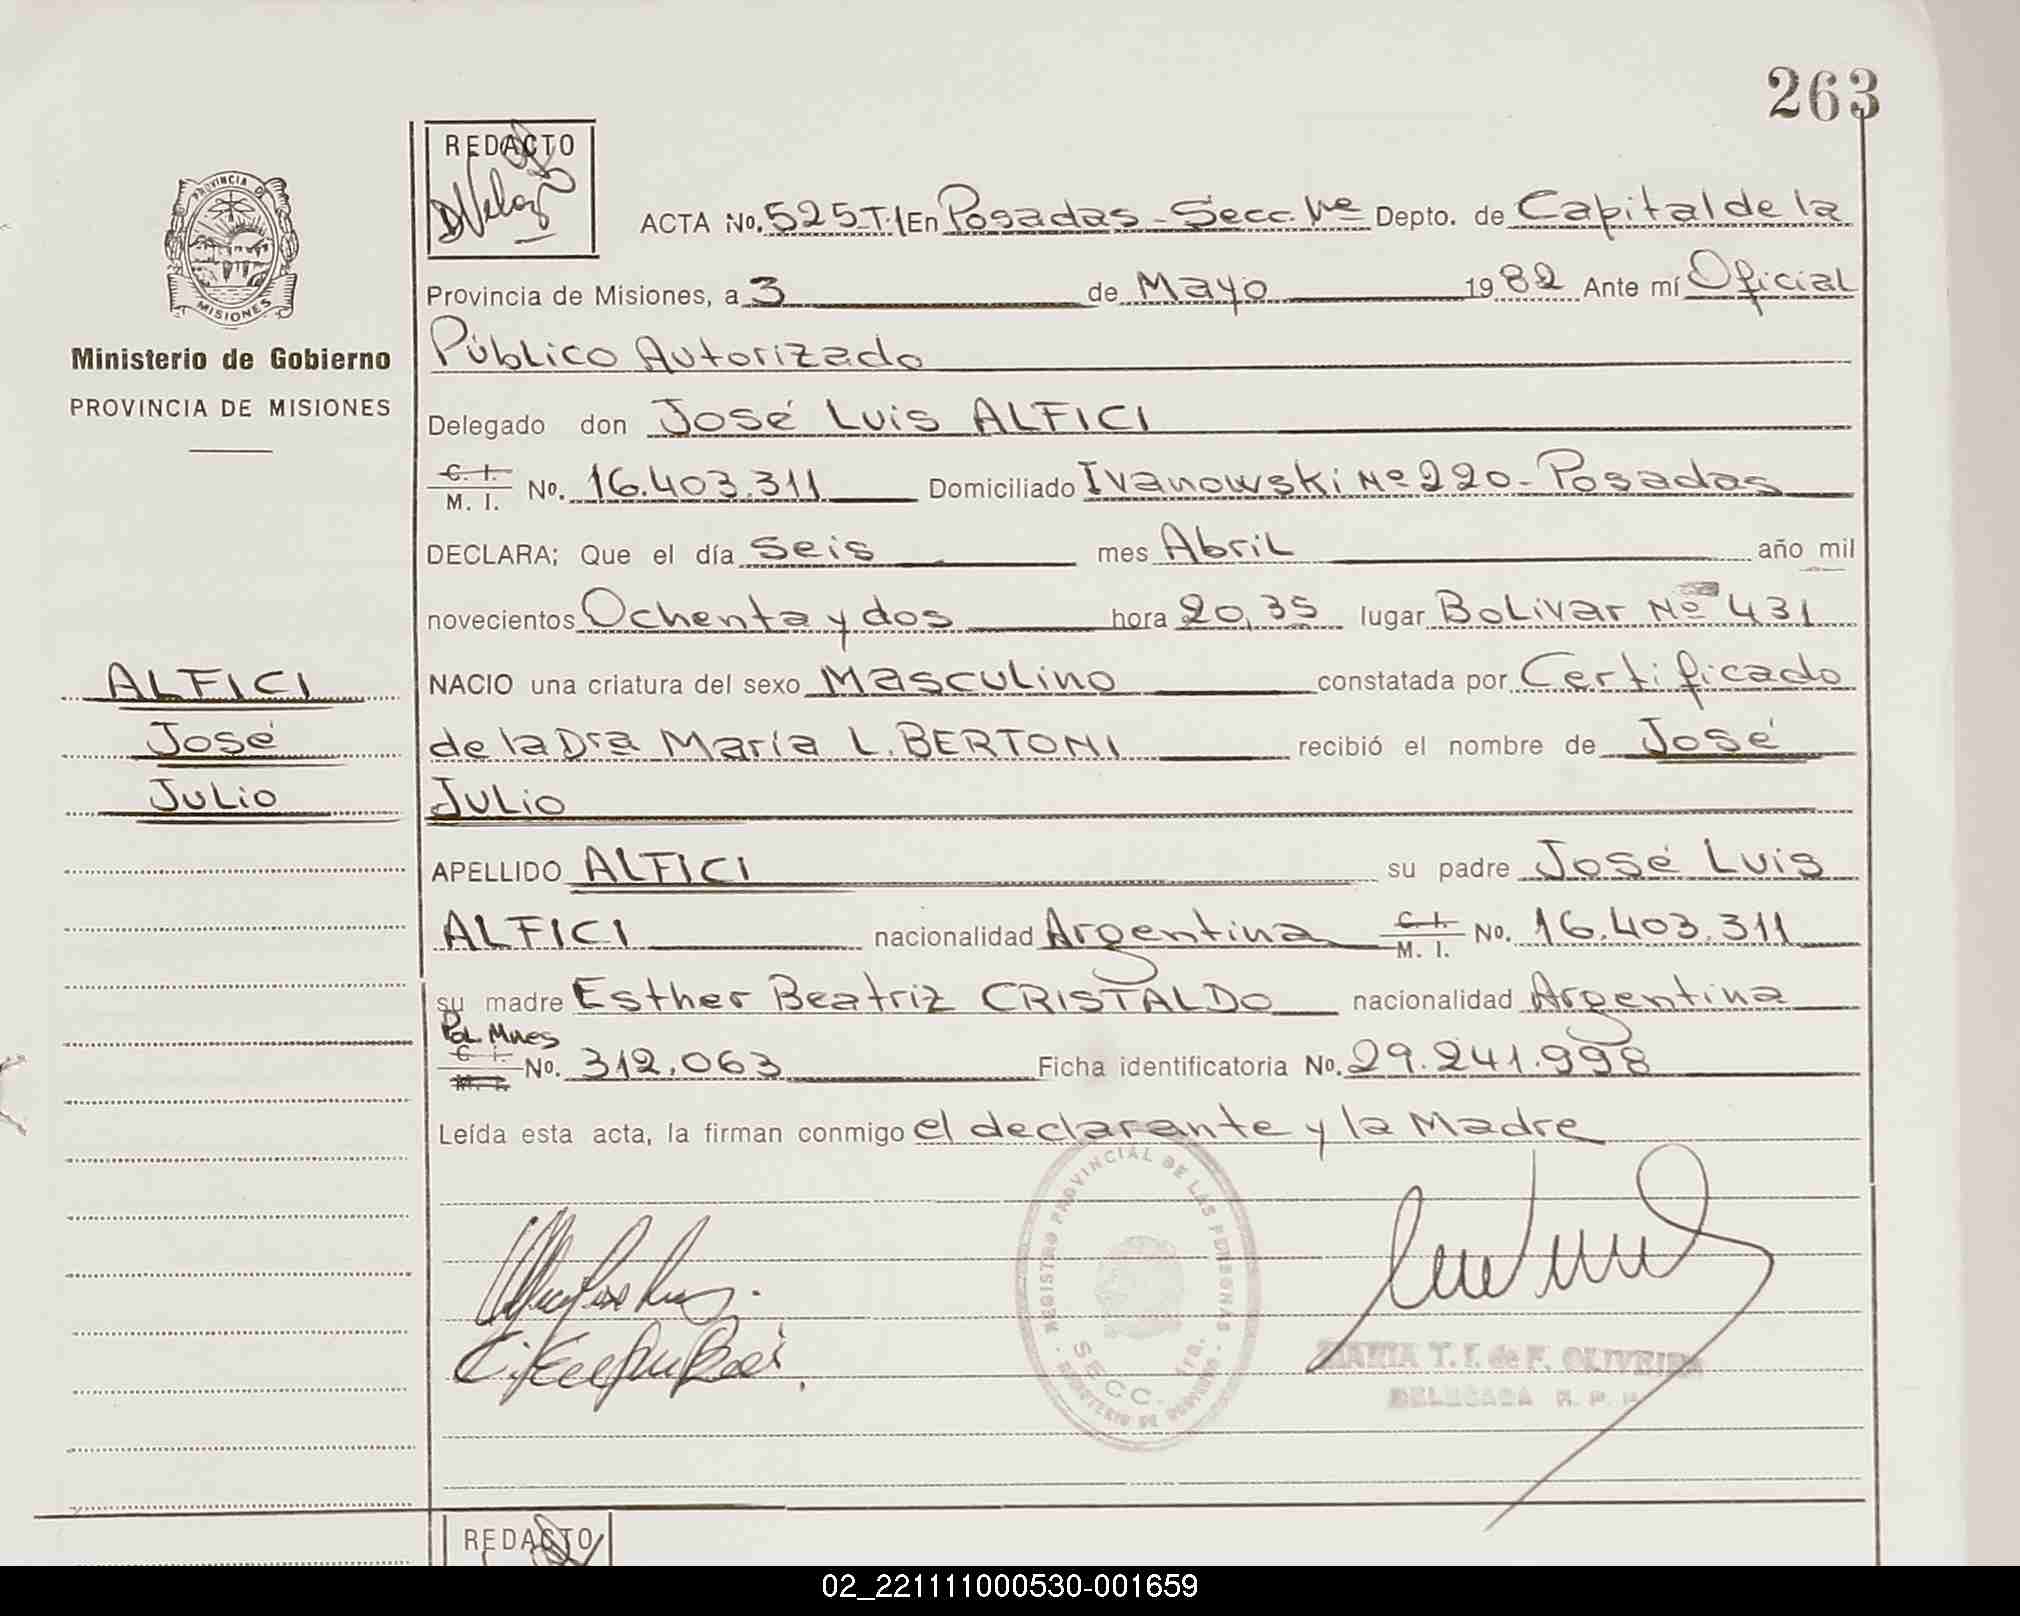 263
REDACTO
DVeloz
PROVINCIA DE
MISIONES
Ministerio de Gobierno
PROVINCIA DE MISIONES
ACTA No. 525-T.I En Posadas - Secc. 1re Depto. de Capital de la
Provincia de Misiones, a 3 de Mayo 1982 Ante mí Oficial
Público Autorizado
Delegado don José Luis ALFICI
C. I.
M. I. No. 16.403.311 Domiciliado Ivanowski Nº 220 - Posadas
DECLARA; Que el día Seis mes Abril año mil
novecientos Ochenta y dos hora 20,35 lugar Bolivar Nº 431
ALFICI
José
Julio
NACIO una criatura del sexo Masculino constatada por Certificado
de la Dra María L. BERTONI recibió el nombre de José
Julio
APELLIDO ALFICI su padre José Luis
ALFICI nacionalidad Argentina C. I. M. I. No. 16.403.311
su madre Esther Beatriz CRISTALDO nacionalidad Argentina
Pol Mnes
C. I. M. I. No. 312.063 Ficha identificatoria No. 29.241.998
Leída esta acta, la firman conmigo el declarante y la Madre
REGISTRO PROVINCIAL DE LAS PERSONAS
SECC. 1ra.
MINISTERIO DE GOBIERNO
MARIA T. F. de F. OLIVEIRA
DELEGADA R. P. P.
REDACTO
02_221111000530-001659